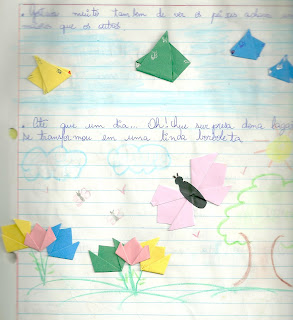 • Gostava muito tambem de ver os peixes achava
música que os outros.
• Até que um dia... Oh! Que surpresa dona lagarta
se transformou em uma linda borboleta